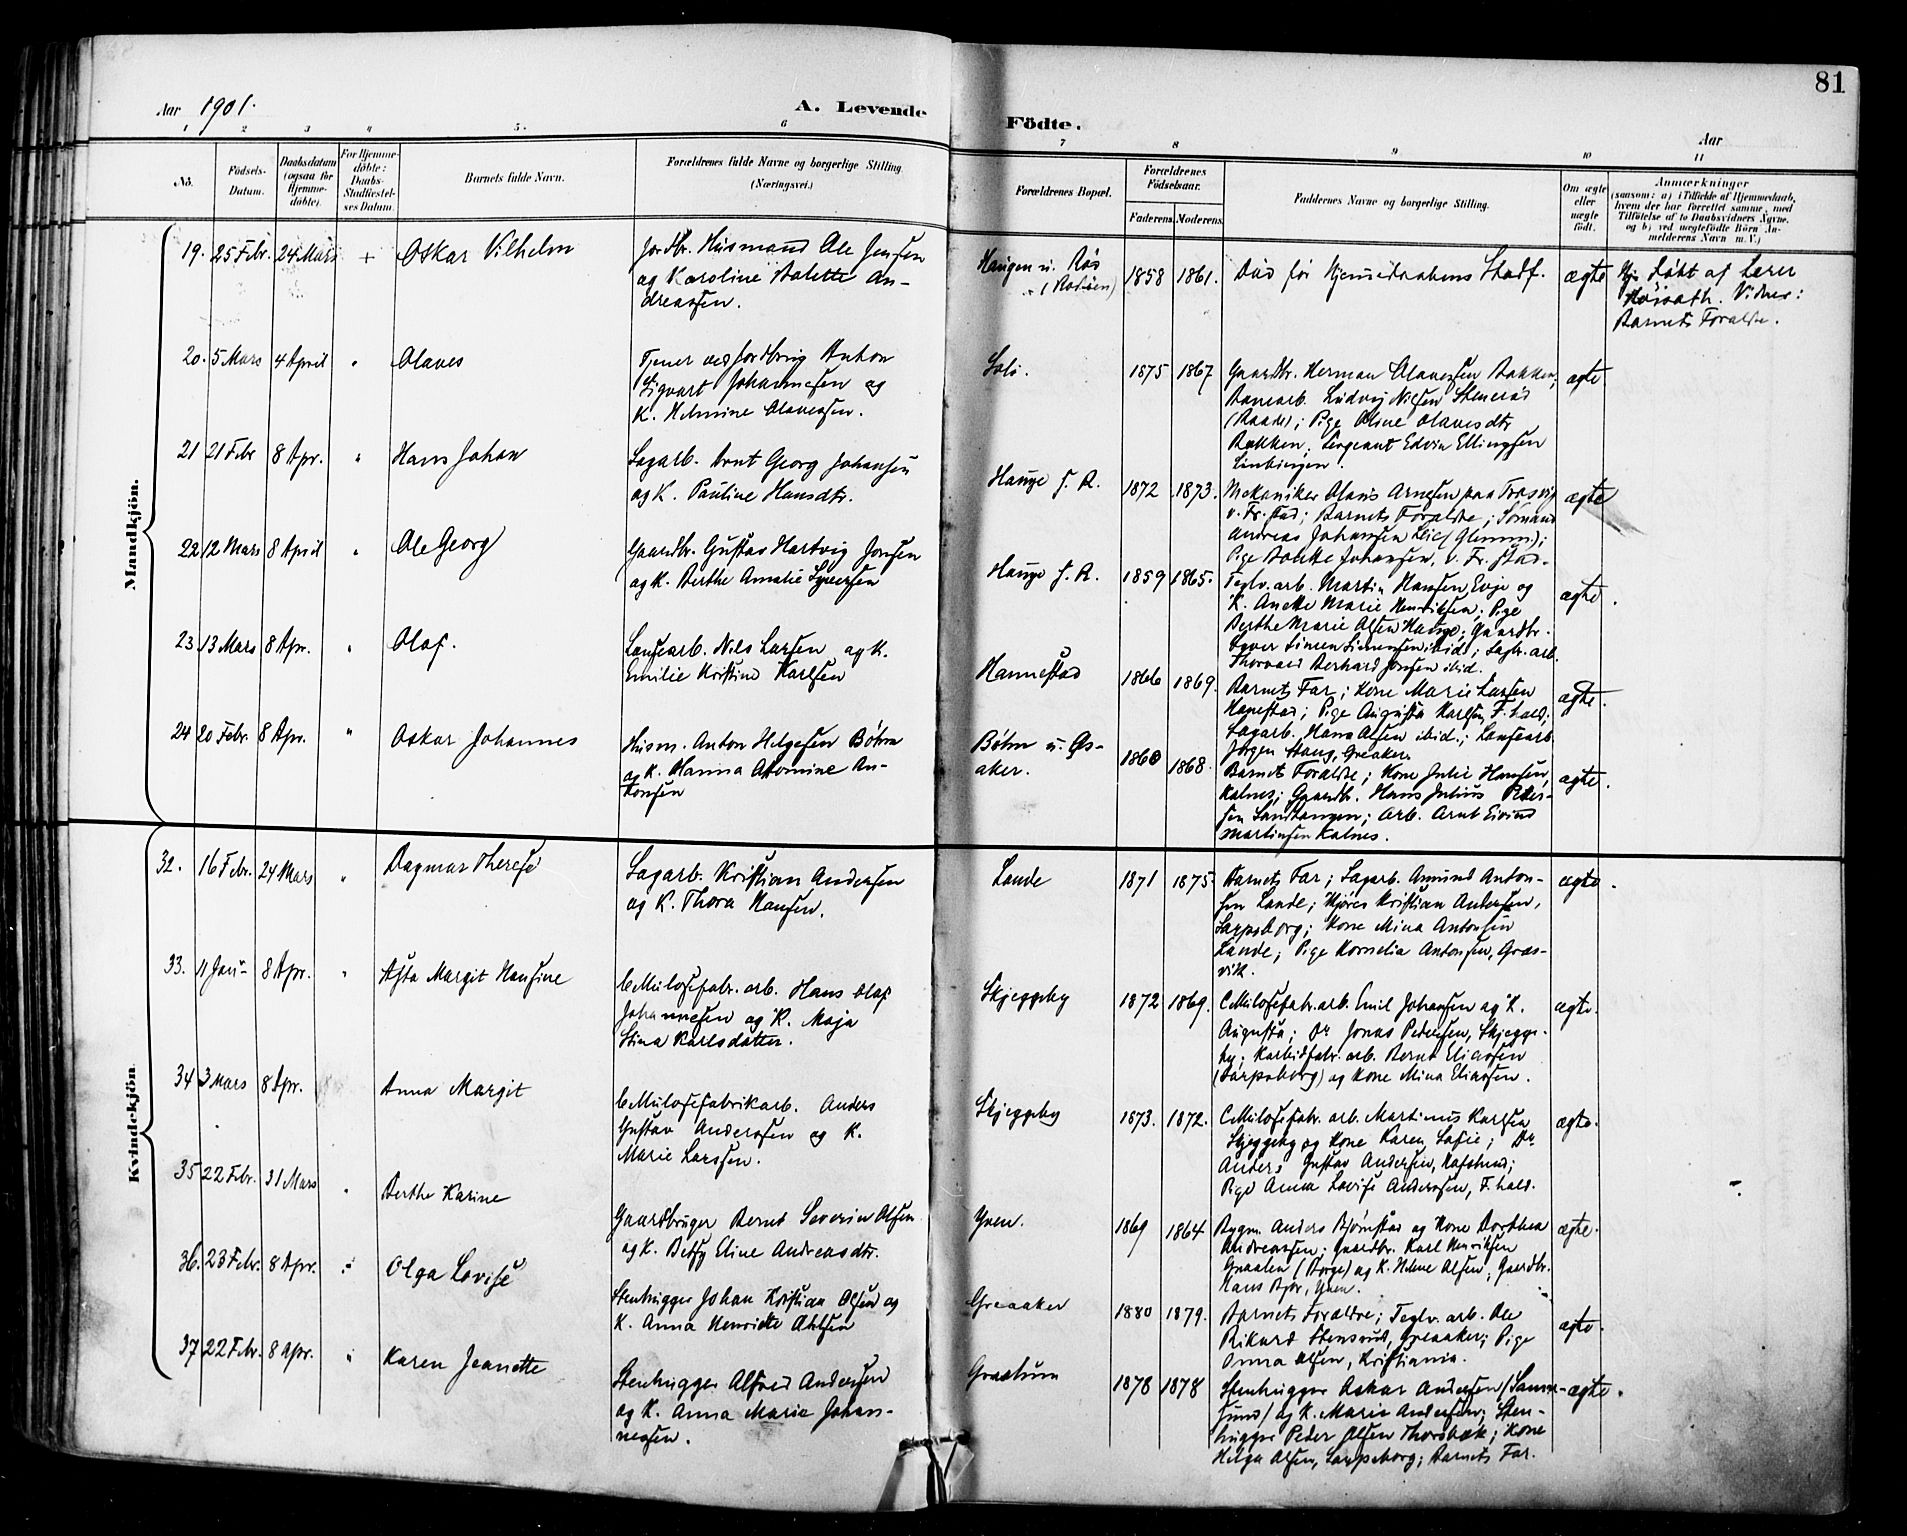 81
Aar 1901.
A. Levende Födte.
Aar
1 2 3 4 5. 6 7 8 9 10 11
No.
Födsels-Datum.
Daabsdatum (ogsaa for Hjemme-döbte).
For Hjemme-döbte: Daabs-Stadfæstel-ses Datum.
Barnets fulde Navn.
Forældrenes fulde Navne og borgerlige Stilling (Næringsvei.)
Forældrenes Bopæl.
Forældrenes Födselsaar.
Faderens. Moderens.
Faddernes Navne og borgerlige Stilling.
Om ægte eller uægte födt.
Anmærkninger
(saasom: a) i Tilfælde af Hjemmedaab, hvem der har forrettet samme, med Tilföielse af to Daabsvidners Navne, og b) ved uægtefödte Börn Anmelderens Navn m. V.)
Mandkjön.
19. 25 Febr. 24 Mars + Oskar Vilhelm
Jordbr. Husmand Ole Jensen
og Karoline
An-
dreassen.
Haugen u. Røs
1858 1861. Død før Hjemmedaabens Stadf. ægte
Hj. døbt af Lærer
Vidner:
Barnets Forældre.
20. 5 Mars 4 April " Olaves
Tjener ved Jordbrug Anton
Sigvart Johannesen og
K. Helmine Olavesen.
Solö.
1875 1867
Gaardbr. Herman Olavessen Bakken;
Banearb. Ludvig Nielsen Stenerød
(Raade); Pige Oline Olavesdtr
Bakken, Sergeant Edvin Ellingsen
ægte
21 21 Febr 8 Apr. " Hans Johan
Sagarb. Arnt Georg Johansen
og K. Pauline Hansdtr.
Hauge f. R.
1872 1873.
Mekaniker Olavis Arnesen paa Trosvig
v. Fr.stad; Barnets Forældre; Sømand
Andreas Johansen Lie (Glemm);
Pige Johansen, v. Fr.stad.
ægte
22 12 Mars 8 April " Ole Georg
Gaardbr. Gustav Hartvig Jensen
og K. Berthe Amalie Syversen
Hauge f. R.
1859 1865.
Teglv. arb. Martin Hansen Evje og
K. Anette Marie Henriksen; Pige
Berthe Marie Olsen Hauge; Gaardbr.
Syver Simen Simensen ibid; Sagb. arb.
Thorvald Berhard Jensen ibid.
ægte.
23. 13 Mars 8 Apr. " Olaf.
Lansearb. Nils Larsen og K.
Emilie Kristine Karlsen
Hannestad
1866 1869.
Barnets Far; Kone Marie Larsen
Hanestad; Pige Augusta Karlsen, F.hald;
Sagarb. Hans Olsen ibid.; Lansearb
Jørgen Haug, Greaker.
ægte.
24 20 Febr. 8 Apr. " Oskar Johannes
Husm. Anton Helgesen Böhm
og K. Hanna Antomine An-
tonsen
Böhm u. Øs-
aker.
1860 1868.
Barnets Forældre; Kone Julie Hansen,
Kalnes; Gaardbr. Hans Julius Peder-
sen Landtangen; Arb. Arnt Eivind
Martinsen Kalnes.
ægte.
Kvindekjön.
32. 16 Febr. 24 Mars " Dagmar Therese
Sagarb. Kristian Andersen
og K. Thora Hansen.
Lande
1871 1875.
Barnets Far; Sagarb. Amund Anton-
sen Lande; Kristian Andersen,
Sarpsborg; Kone Mina Antonsen
Lande; Pige Kornelia Antonsen, Græs-
vik.
ægte.
33. 11 Jan 8 Apr. " Asta Margit Hansine
Cellulosefabr. arb. Hans Olaf
Johannesen og K. Maja
Stina Karlsdatter.
Skjeggeby
1872 1869.
Cellulosefabr. arb. Emil Johansen og K.
Augusta; Do Jonas Pedersen, Skjegge-
by; Karbidfabr. arb. Bernt Eliassen
(Sarpsborg) og Kone Mina Eliassen.
ægte.
34 3 Mars 8 Apr. Anna Margit
Cellulosefabrikarb. Anders
Gustav Anderssen og K.
Marie Larssen.
Skjeggeby
1873. 1872.
Cellulosefabr. arb. Martinus Karlsen
Skjeggeby og Kone Karen Sofie; Do
Anders Gustav Andersen, Hafslund;
Pige Anna Lovise Anderssen, F.hald.
ægte.
35 22 Febr. 31 Mars " Berthe Karine
Gaardbruger Bernt Severin Olsen
og K. Betsy Eline Andreasdtr.
Yven.
1869 1864
Bygm. Anders Bjørnstad og Kone Dorthea
Andreassen; Gaardbr. Karl Henriksen
Graalen (Borge) og K. Helene Olsen, Gaardbr.
Hans Bjør, Yven.
ægte.
36. 23 Febr. 8 Apr. " Olga Lovise
Stenhugger Johan Kristian Olsen og
K. Anna Henriette Ohlsen
Greaaker
1880 1879.
Barnets Forældre; Teglv. arb. Ole
Rikard Stensrud, Greaaker; Pige
Anna Olsen, Kristiania.
ægte.
37 22 Febr. 8 Apr. " Karen Jeanette
Stenhugger Alfred Andersen
og K. Anna Marie Johan-
nesen.
Graatum
1878 1878
Stenhugger Oskar Andersen (Sanne-
sund) og K. Marie Andersen; Sten-
hugger Peder Olsen Thorsbæk; Kone
Helga Olsen, Sarpsborg; Barnets Far.
ægte.